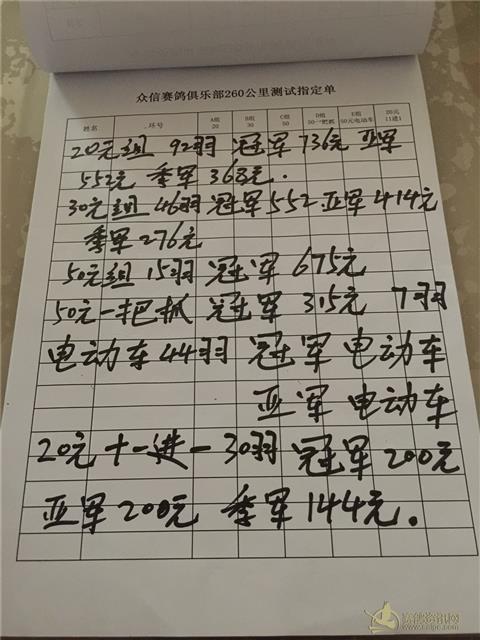 众信赛鸽俱乐部260公里测试指定单
姓名 环号 A组 20 B组 30 C组 50 D组 50一把抓 E组 50元电动车 20元 11进1
20元组 92羽 冠军 736元 亚军
552元 季军 368元.
30元组 46羽 冠军 552 亚军 414元
季军 276元
50元组 15羽 冠军 675元
50元一把抓 冠军 315元 7羽
电动车 44羽 冠军 电动车
亚军 电动车
20元十一进一 30羽 冠军 200元
亚军 200元 季军 144元.
赛鸽资讯网